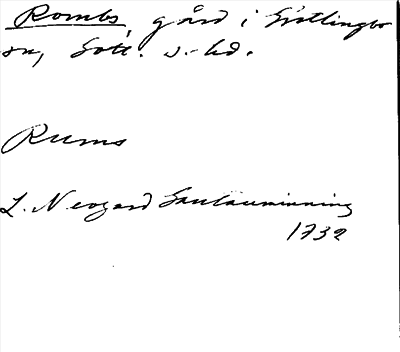 Rombs, gård i Grötlingbo
sn, Gotl. s. hd.
Rums
L. Neogard Gautauminning
1732